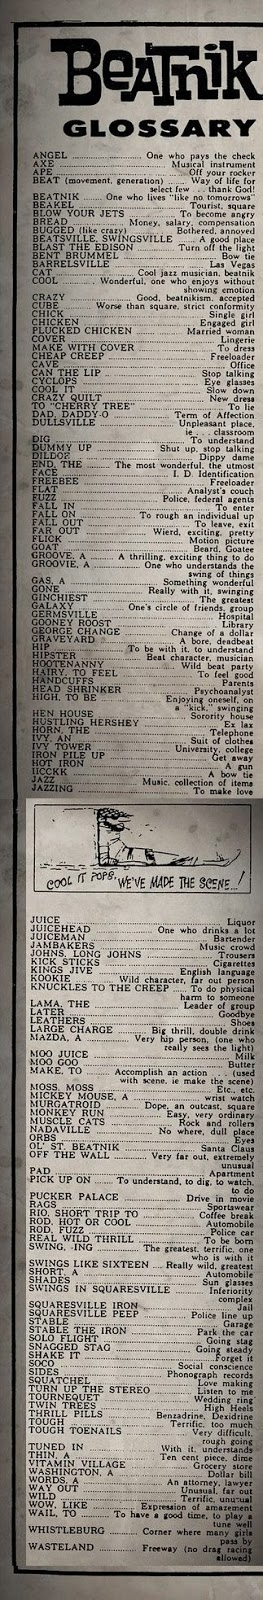 BEATNIK
GLOSSARY
ANGEL ........ One who pays the check
AXE ........ Musical instrument
APE ........ Off your rocker
BEAT (movement, generation) ........ Way of life for
select few . . . thank God!
BEATNIK ........ One who lives "like no tomorrows"
BEAKEL ........ Tourist, square
BLOW YOUR JETS ........ To become angry
BREAD ........ Money, salary, compensation
BUGGED (like crazy) ........ Bothered, annoyed
BEATSVILLE, SWINGSVILLE ........ A good place
BLAST THE EDISON ........ Turn off the light
BENT BRUMMEL ........ Bow tie
BARRELSVILLE ........ Las Vegas
CAT ........ Cool jazz musician, beatnik
COOL ........ Wonderful, one who enjoys without
showing emotion
CRAZY ........ Good, beatnikism, accepted
CUBE ........ Worse than square, strict conformity
CHICK ........ Single girl
CHICKEN ........ Engaged girl
PLUCKED CHICKEN ........ Married woman
COVER ........ Lingerie
MAKE WITH COVER ........ To dress
CHEAP CREEP ........ Freeloader
CAVE ........ Office
CAN THE LIP ........ Stop talking
CYCLOPS ........ Eye glasses
COOL IT ........ Slow down
CRAZY QUILT ........ New dress
TO "CHERRY TREE" ........ To lie
DAD, DADDY-O ........ Term of Affection
DULLSVILLE ........ Unpleasant place,
ie . . . classroom
DIG ........ To understand
DUMMY UP ........ Shut up, stop talking
DILDOE ........ Dippy dame
END, THE ........ The most wonderful, the utmost
FACE ........ I. D. Identification
FREEBEE ........ Freeloader
FLAT ........ Analyst's couch
FUZZ ........ Police, federal agents
FALL IN ........ To enter
FALL ON ........ To rough an individual up
FALL OUT ........ To leave, exit
FAR OUT ........ Wierd, exciting, pretty
FLICK ........ Motion picture
GOAT ........ Beard, Goatee
GROOVE, A ........ A thrilling, exciting thing to do
GROOVIE, A ........ One who understands the
swing of things
GAS, A ........ Something wonderful
GONE ........ Really with it, swinging
GINCHIEST ........ The greatest
GALAXY ........ One's circle of friends, group
GERMSVILLE ........ Hospital
GOONEY ROOST ........ Library
GEORGE CHANGE ........ Change of a dollar
GRAVEYARD ........ A bore, deadbeat
HIP ........ To be with it, to understand
HIPSTER ........ Beat character, musician
HOOTENANNY ........ Wild beat party
HAIRY, TO FEEL ........ To feel good
HANDCUFFS ........ Parents
HEAD SHRINKER ........ Psychoanalyst
HIGH, TO BE ........ Enjoying oneself, on
a "kick," swinging
HEN HOUSE ........ Sorority house
HUSTLING HERSHEY ........ Ex lax
HORN, THE ........ Telephone
IVY, AN ........ Suit of clothes
IVY TOWER ........ University, college
IRON PILE UP ........ Get away
HOT IRON ........ A gun
IICCKK ........ A bow tie
JAZZ ........ Music, collection of items
JAZZING ........ To make love
COOL IT POPS, WE'VE MADE THE SCENE..!
JUICE ........ Liquor
JUICEHEAD ........ One who drinks a lot
JUICEMAN ........ Bartender
JAMBAKERS ........ Music crowd
JOHNS, LONG JOHNS ........ Trousers
KICK STICKS ........ Cigarettes
KINGS JIVE ........ English language
KOOKIE ........ Wild character, far out person
KNUCKLES TO THE CREEP ........ To do physical
harm to someone
LAMA, THE ........ Leader of group
LATER ........ Goodbye
LEATHERS ........ Shoes
LARGE CHARGE ........ Big thrill, double drink
MAZDA, A ........ Very hip person, (one who
really sees the light)
MOO JUICE ........ Milk
MOO GOO ........ Butter
MAKE, TO ........ Accomplish an action . . . (used
with scene, ie make the scene)
MOSS, MOSS ........ Etc., etc.
MICKEY MOUSE, A ........ wrist watch
MURGATROID ........ Dope, an outcast, square
MONKEY RUN ........ Easy, very ordinary
MUSCLE CATS ........ Rock and rollers
NADAVILLE ........ No where, dull place
ORBS ........ Eyes
OL' ST. BEATNIK ........ Santa Claus
OFF THE WALL ........ Very far out, extremely
unusual
PAD ........ Apartment
PICK UP ON ........ To understand, to dig, to watch,
to do
PUCKER PALACE ........ Drive in movie
RAGS ........ Sportswear
RIO, SHORT TRIP TO ........ Coffee break
ROD, HOT OR COOL ........ Automobile
ROD, FUZZ ........ Police car
REAL WILD THRILL ........ To be born
SWING, -ING ........ The greatest, terrific, one
who is with it
SWINGS LIKE SIXTEEN ........ Really wild, greatest
SHORT, A ........ Automobile
SHADES ........ Sun glasses
SWINGS IN SQUARESVILLE ........ Inferiority
complex
SQUARESVILLE IRON ........ Jail
SQUARESVILLE PEEP ........ Police line up
STABLE ........ Garage
STABLE THE IRON ........ Park the car
SOLO FLIGHT ........ Going stag
SNAGGED STAG ........ Going steady
SHAKE IT ........ Forget it
SOCO ........ Social conscience
SIDES ........ Phonograph records
SQUATCHEL ........ Love making
TURN UP THE STEREO ........ Listen to me
TOURNEQUET ........ Wedding ring
TWIN TREES ........ High Heels
THRILL PILLS ........ Benzadrine, Dexidrine
TOUGH ........ Terrific, too much
TOUGH TOENAILS ........ Very difficult,
rough going
TUNED IN ........ With it, understands
THIN, A ........ Ten cent piece, dime
VITAMIN VILLAGE ........ Grocery store
WASHINGTON, A ........ Dollar bill
WORDS, A ........ An attorney, lawyer
WAY OUT ........ Unusual, far out
WILD ........ Terrific, unusual
WOW, LIKE ........ Expression of amazement
WAIL, TO ........ To have a good time, to play a
tune well
WHISTLEBURG ........ Corner where many girls
pass by
WASTELAND ........ Freeway (no drag racing
allowed)